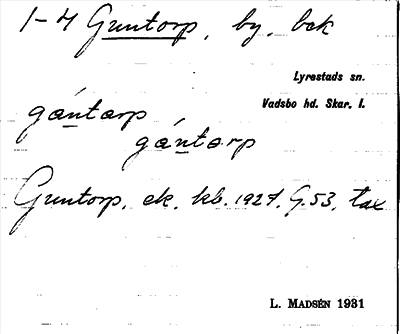 1-4 Guntorp, by, bck
Lyrestads sn.
Vadsbo hd. Skar. l.
gántarp
gántarp
Guntorp, ek. kb. 1927, G. 53, tax
L. MADSÉN 1931